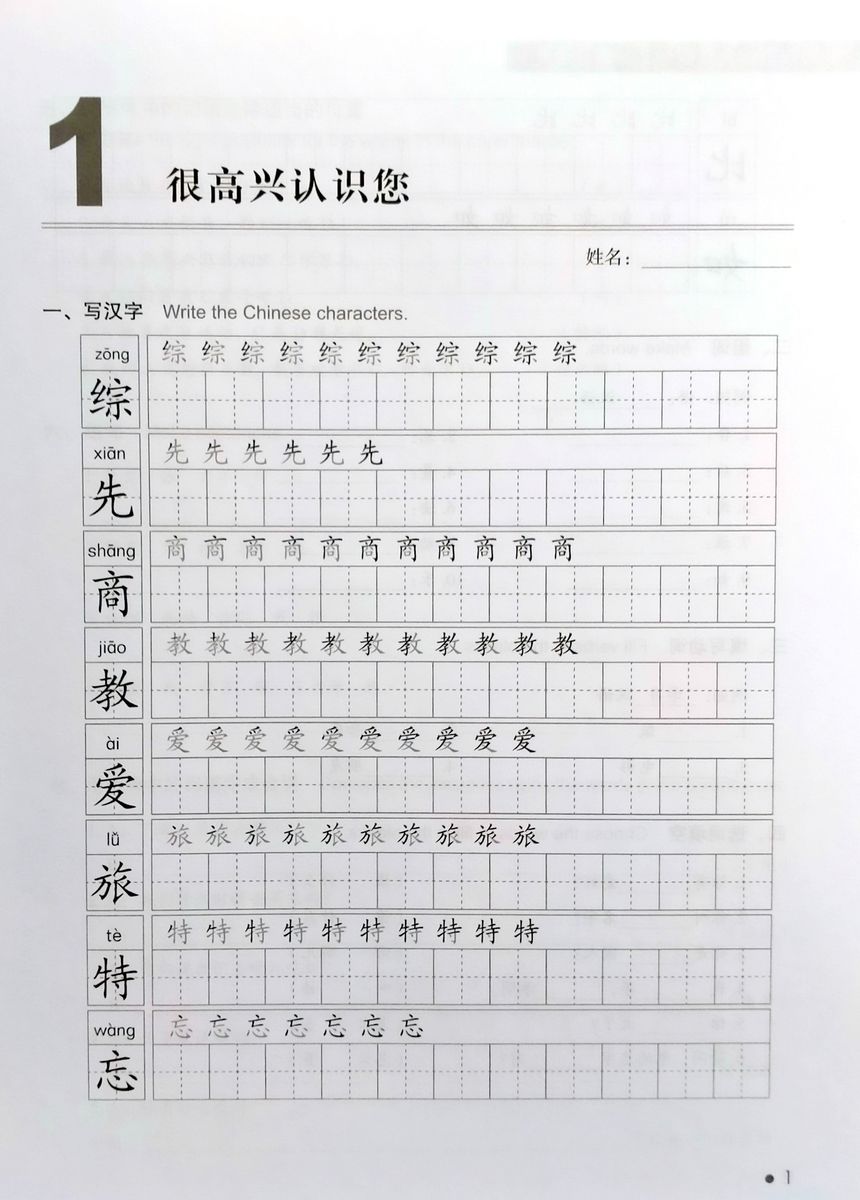 1
很高兴认识您
姓名:
一、写汉字 Write the Chinese characters.
zōng 综 综 综 综 综 综 综 综 综 综 综
综
xiān 先 先 先 先 先 先
先
shāng 商 商 商 商 商 商 商 商 商 商 商
商
jiāo 教 教 教 教 教 教 教 教 教 教 教
教
ài 爱 爱 爱 爱 爱 爱 爱 爱 爱 爱
爱
lǚ 旅 旅 旅 旅 旅 旅 旅 旅 旅 旅
旅
tè 特 特 特 特 特 特 特 特 特 特
特
wàng 忘 忘 忘 忘 忘 忘 忘
忘
1